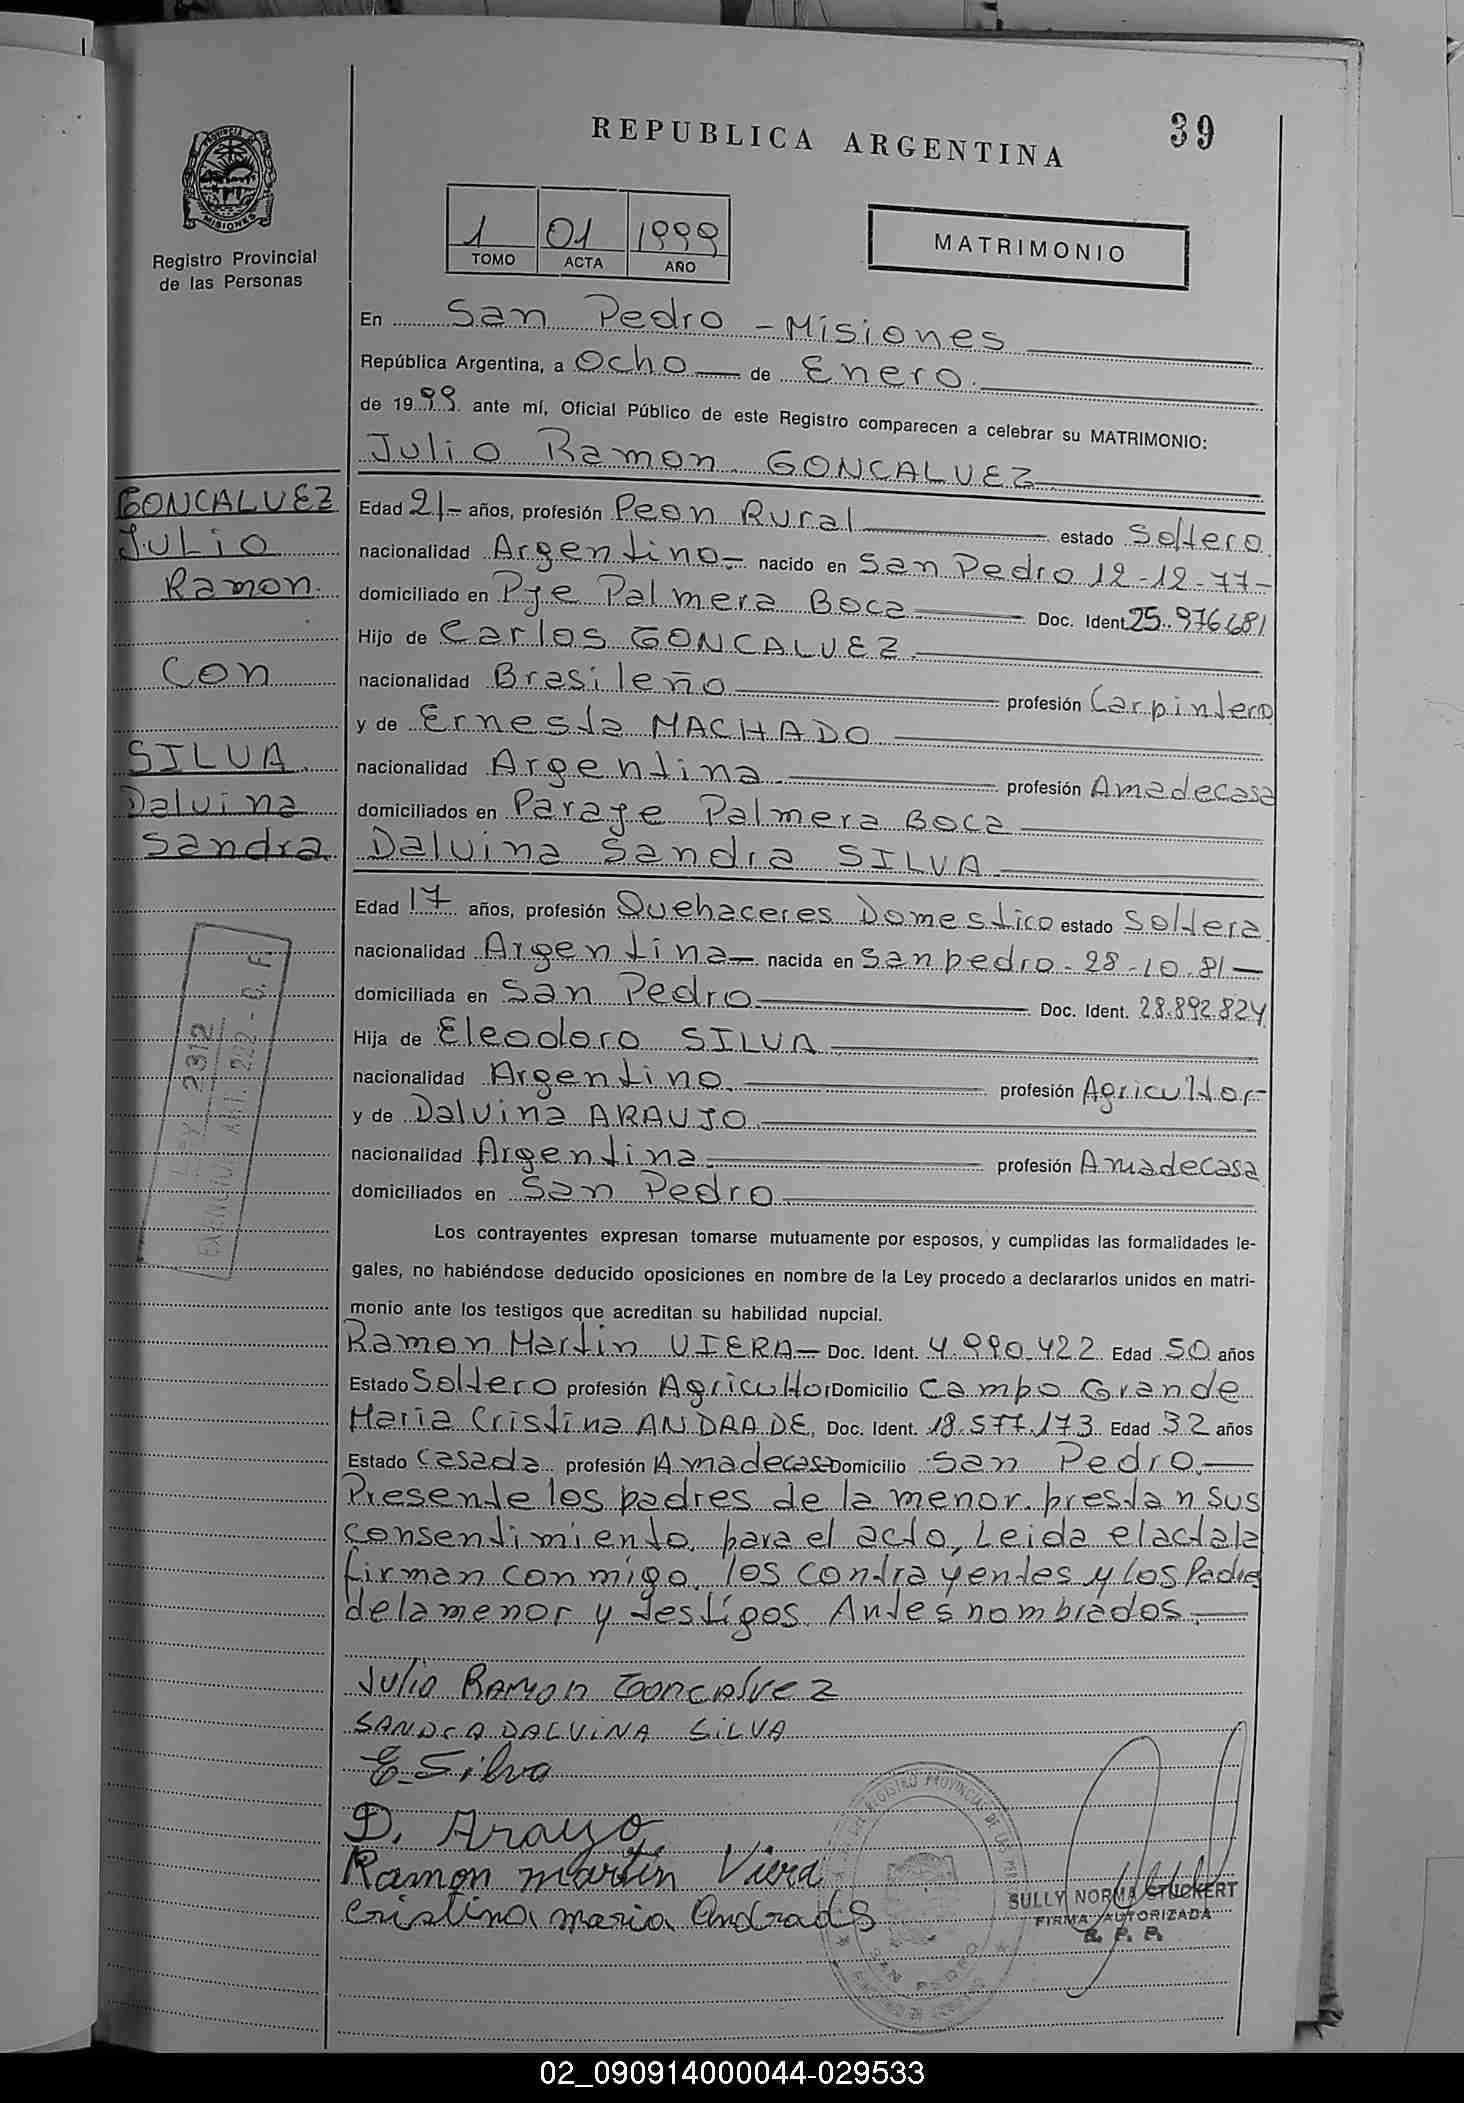 REPUBLICA ARGENTINA
39
PROVINCIA DE
MISIONES
Registro Provincial
de las Personas
1 01 1999
TOMO ACTA AÑO
MATRIMONIO
En San Pedro - Misiones
República Argentina, a Ocho de Enero.
de 1999 ante mí, Oficial Público de este Registro comparecen a celebrar su MATRIMONIO:
Julio Ramon GONCALVEZ
GONCALVEZ
Julio
Ramon.
Con
SILVA
Dalvina
Sandra
Edad 21- años, profesión Peon Rural estado Soltero
nacionalidad Argentino- nacido en San Pedro 12-12-77-
domiciliado en Pje Palmera Boca Doc. Ident. 25.976.681
Hijo de Carlos GONCALVEZ
nacionalidad Brasileño profesión Carpintero
y de Ernesta MACHADO
nacionalidad Argentina profesión Amadecasa
domiciliados en Paraje Palmera Boca
Dalvina Sandra SILVA
Edad 17 años, profesión Quehaceres Domestico estado Soltera
nacionalidad Argentina- nacida en San pedro - 28-10-81-
domiciliada en San Pedro Doc. Ident. 28.892.824
Hija de Eleodoro SILVA
nacionalidad Argentino profesión Agricultor-
y de Dalvina ARAUJO
nacionalidad Argentina profesión Amadecasa
domiciliados en San Pedro
LEY 2312
ART. 222 - C. F.
Los contrayentes expresan tomarse mutuamente por esposos, y cumplidas las formalidades le-
gales, no habiéndose deducido oposiciones en nombre de la Ley procedo a declararlos unidos en matri-
monio ante los testigos que acreditan su habilidad nupcial.
Ramon Martin VIERA- Doc. Ident. 4.990.422 Edad 50 años
Estado Soltero profesión Agricultor Domicilio Campo Grande
Maria Cristina ANDRADE, Doc. Ident. 18.577.173 Edad 32 años
Estado Casada profesión Amadecasa Domicilio San Pedro.-
Presente los padres de la menor. prestan sus
consentimiento, para el acto, Leida el acta la
firman conmigo, los contrayentes y los Padres
de la menor y testigos. Antes nombrados.-
Julio RAMON GONCALVEZ
SANDRA DALVINA SILVA
E. Silva
D. Arauyo
Ramon martin Viera
Cristina maria Andrade
REGISTRO PROVINCIAL DE LAS PER
SAN PEDRO
SULLY NORMA STUCKERT
FIRMA AUTORIZADA
R. P. P.
02_090914000044-029533